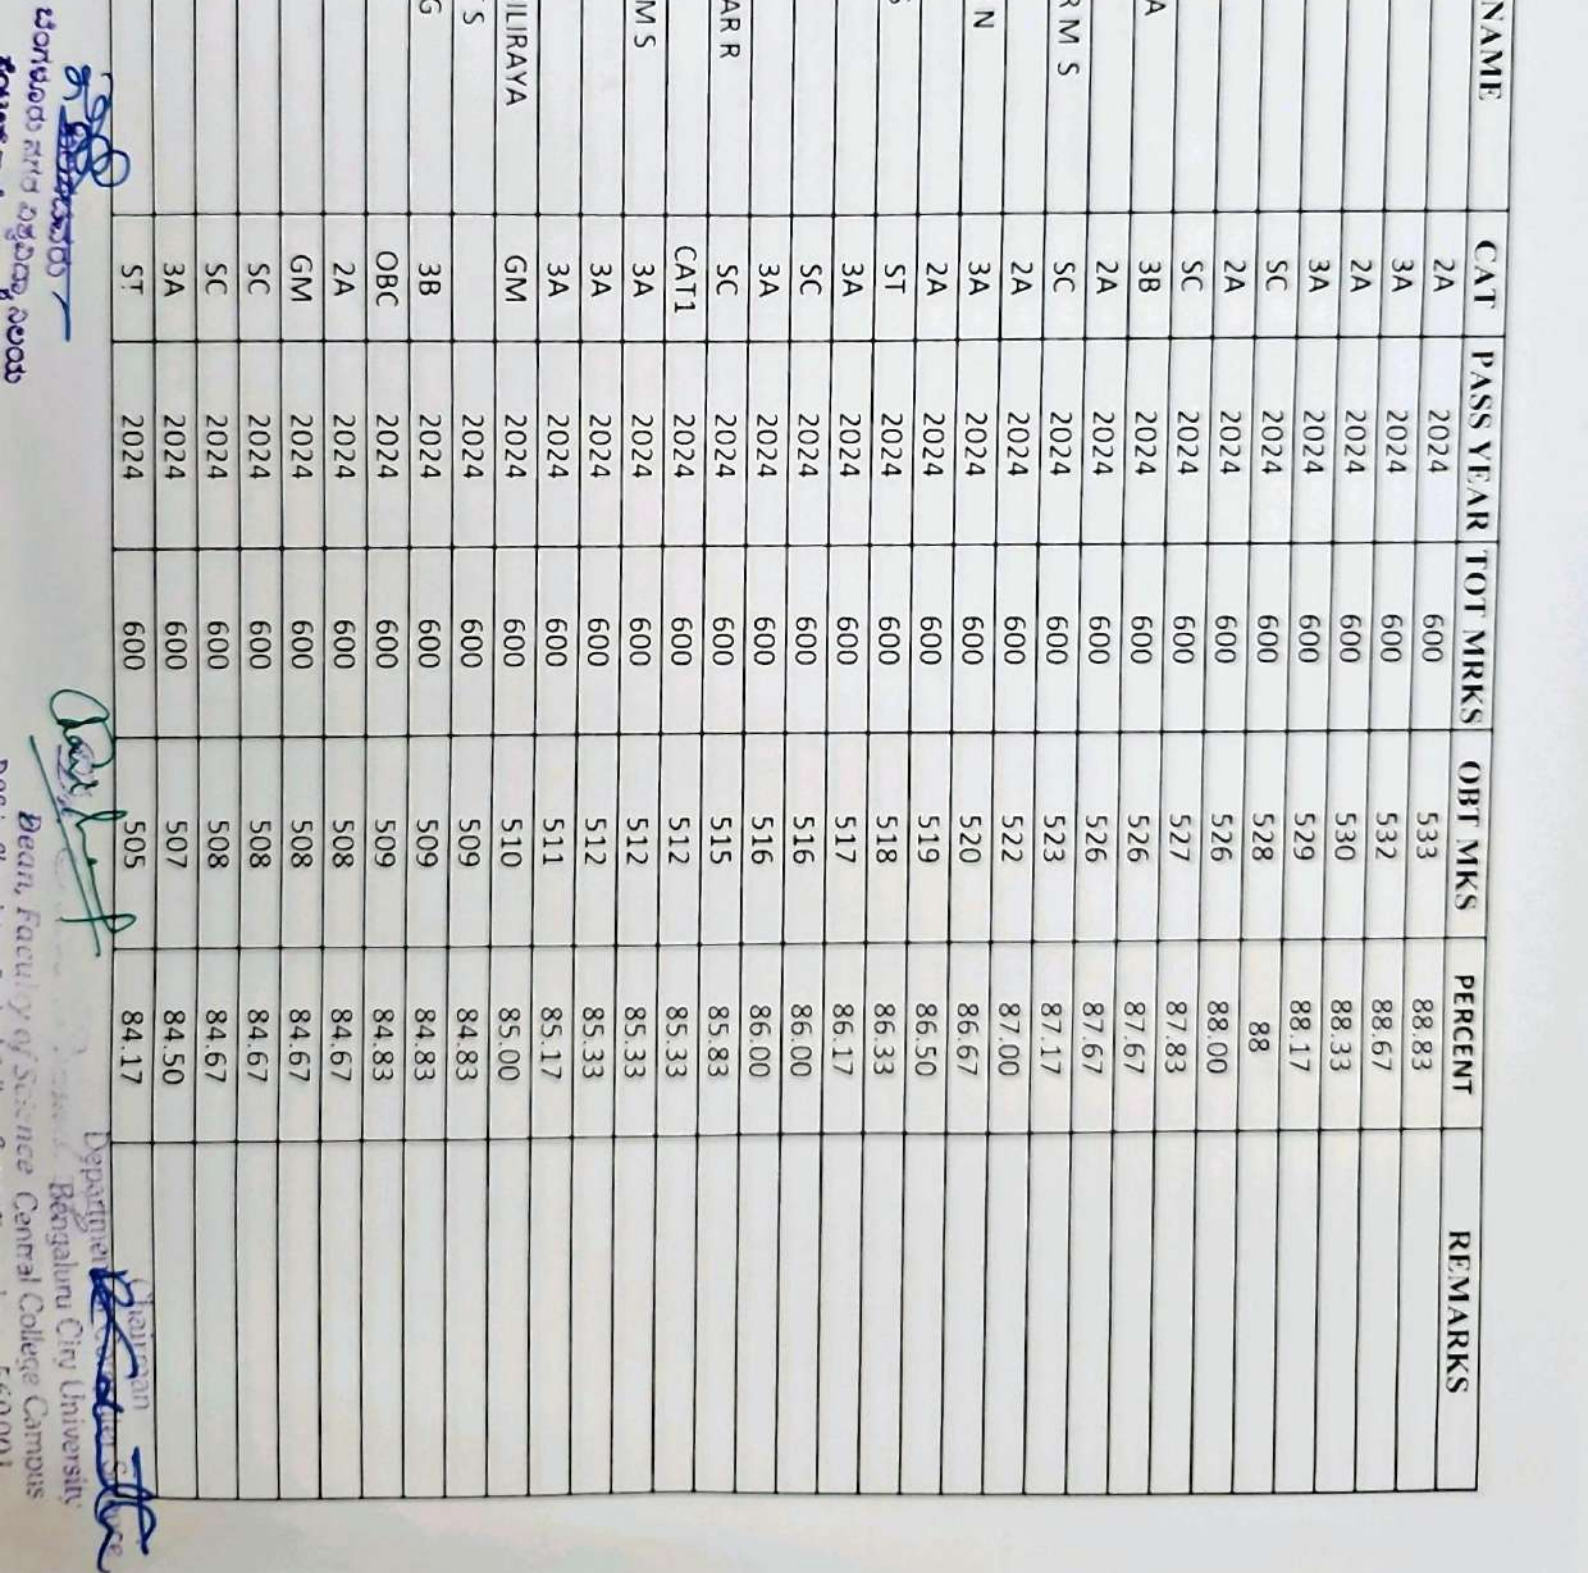 NAME CAT PASS YEAR TOT MRKS OBT MKS PERCENT REMARKS
2A 2024 600 533 88.83
3A 2024 600 532 88.67
2A 2024 600 530 88.33
3A 2024 600 529 88.17
SC 2024 600 528 88
2A 2024 600 526 88.00
SC 2024 600 527 87.83
A 3B 2024 600 526 87.67
2A 2024 600 526 87.67
R M S SC 2024 600 523 87.17
2A 2024 600 522 87.00
N 3A 2024 600 520 86.67
2A 2024 600 519 86.50
ST 2024 600 518 86.33
3A 2024 600 517 86.17
SC 2024 600 516 86.00
3A 2024 600 516 86.00
AR R SC 2024 600 515 85.83
CAT1 2024 600 512 85.33
M S 3A 2024 600 512 85.33
3A 2024 600 512 85.33
3A 2024 600 511 85.17
ILIRAYA GM 2024 600 510 85.00
S 2024 600 509 84.83
G 3B 2024 600 509 84.83
OBC 2024 600 509 84.83
2A 2024 600 508 84.67
GM 2024 600 508 84.67
SC 2024 600 508 84.67
SC 2024 600 508 84.67
3A 2024 600 507 84.50
ST 2024 600 505 84.17
Chairman
Department
Bengaluru City University
ಬೆಂಗಳೂರು ನಗರ ವಿಶ್ವವಿದ್ಯಾನಿಲಯ
Dean, Faculty of Science Central College Campus